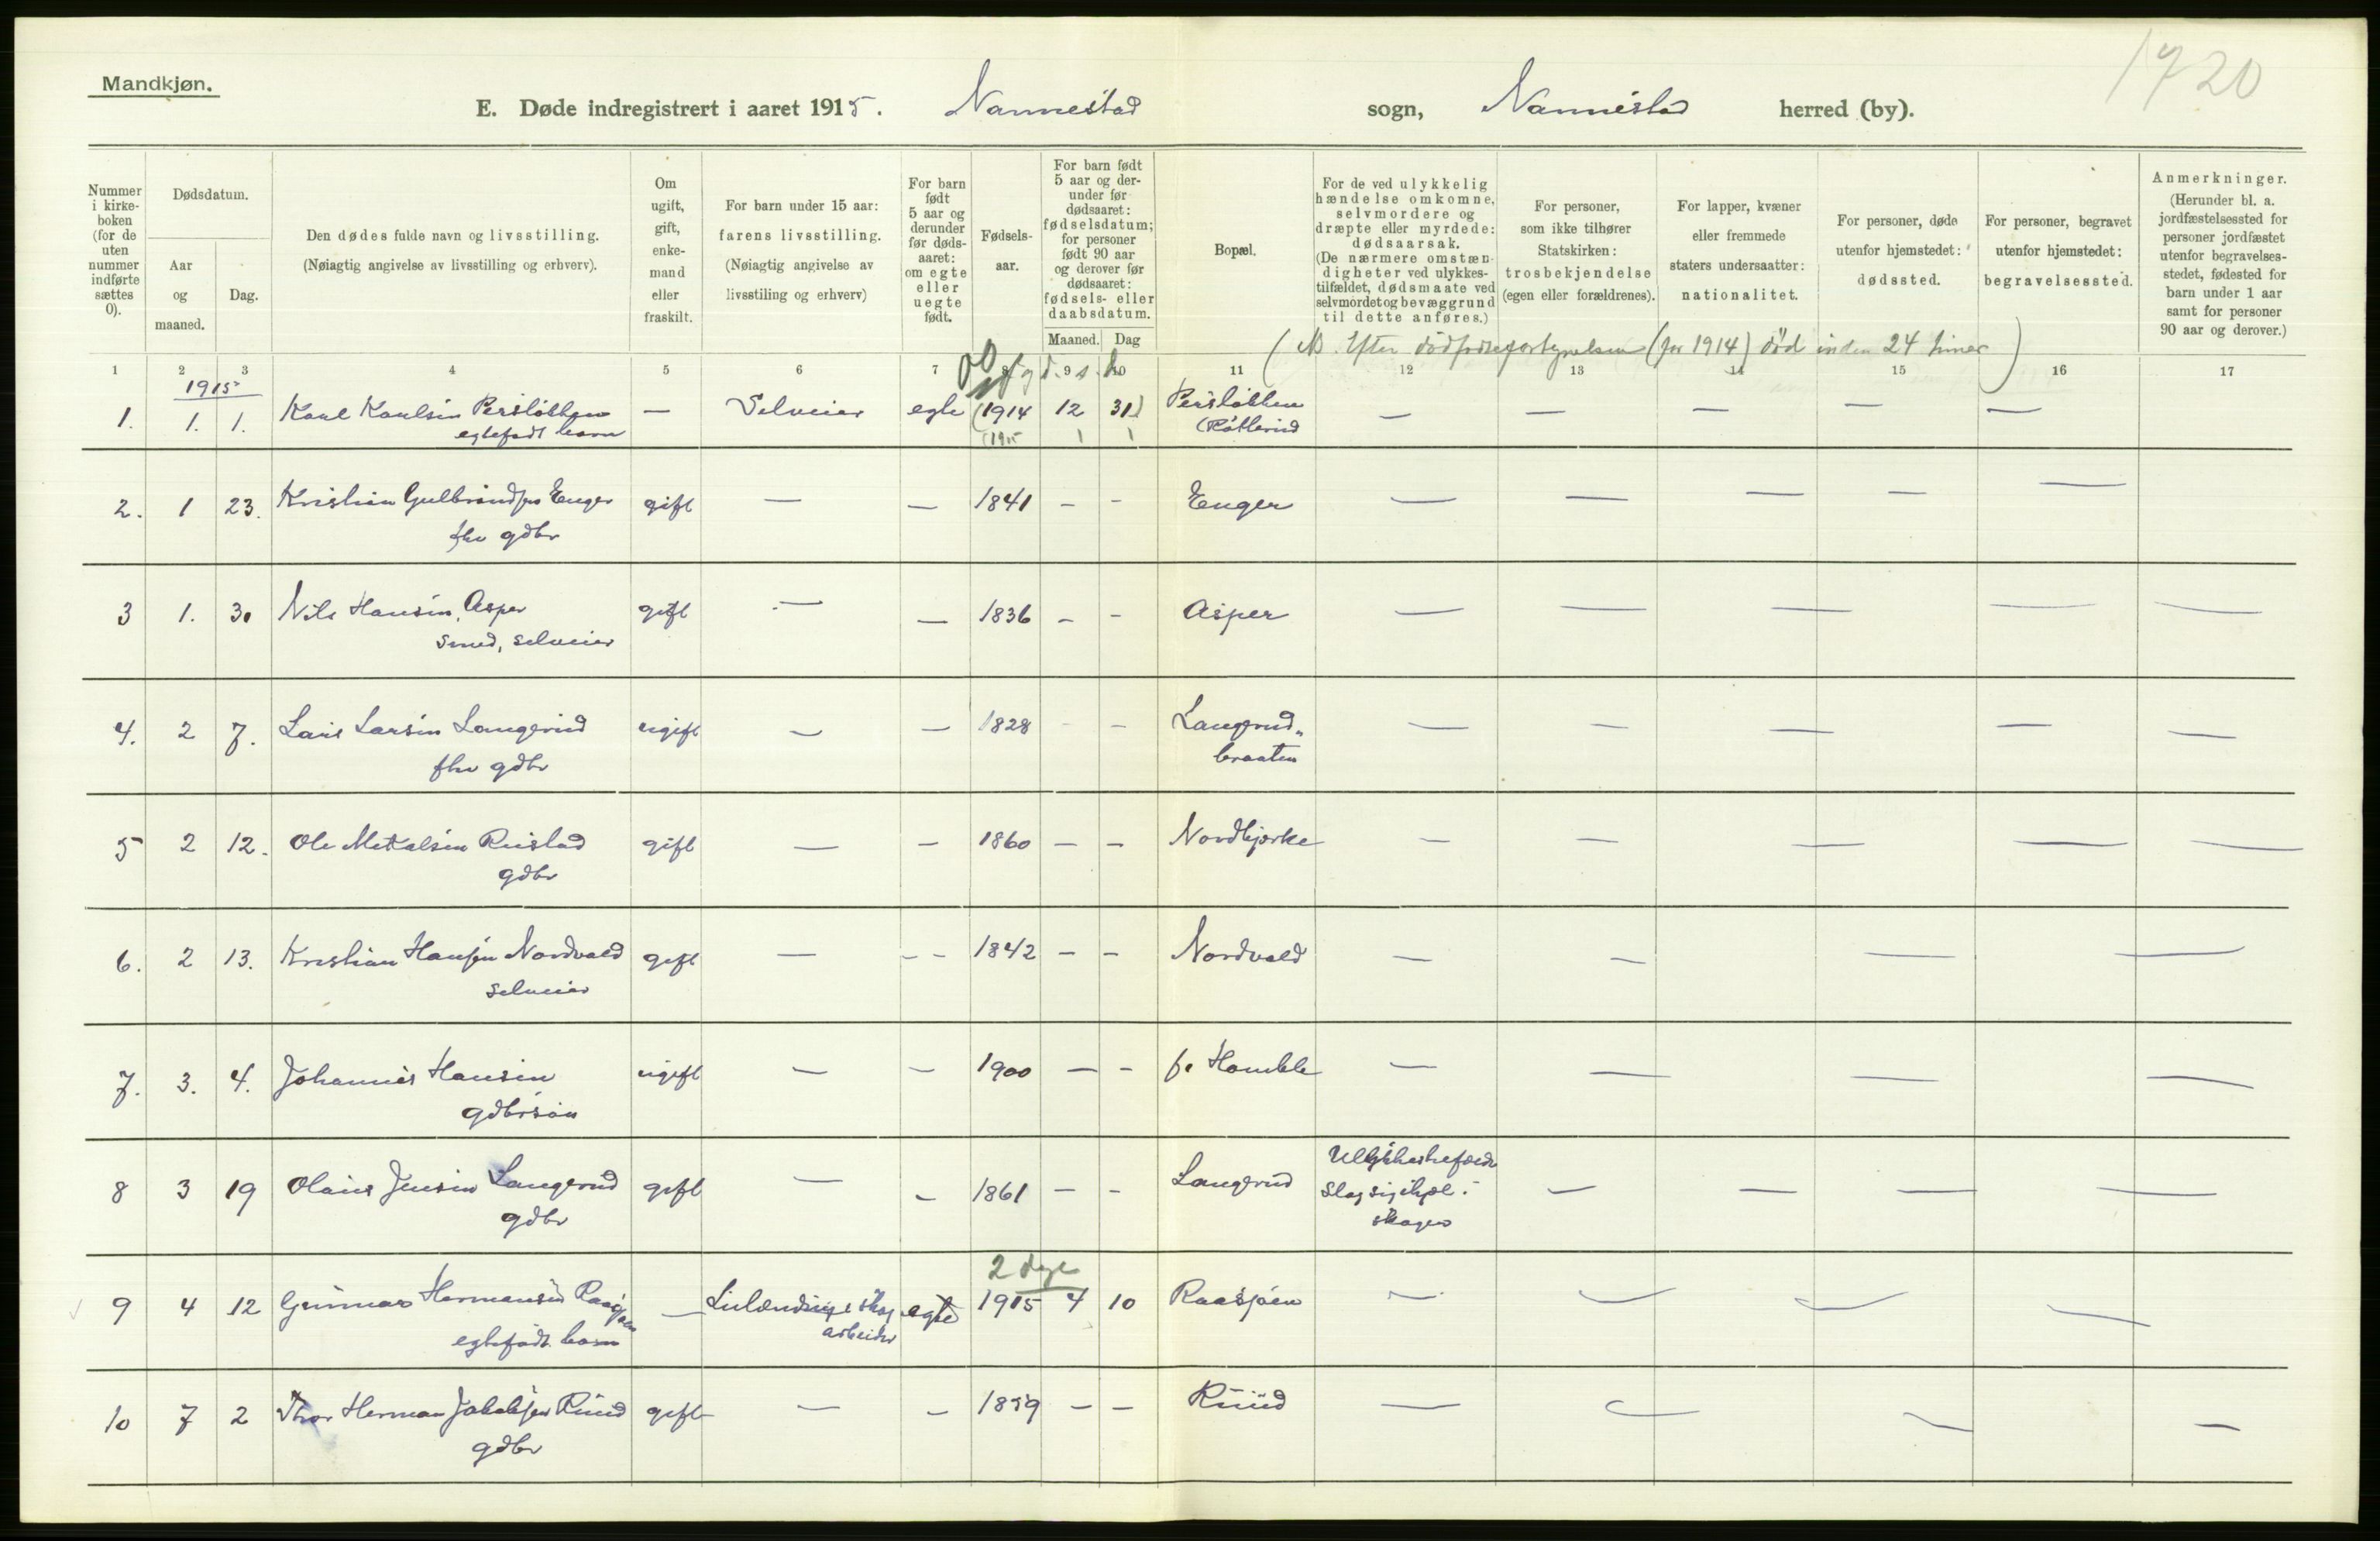 Mandkjøn.
1720
E. Døde indregistrert i aaret 1915. Nannestad sogn, Nannestad herred (by).
Nummer i kirke-boken (for de uten nummer indførte sættes 0).
Dødsdatum.
Aar og maaned.
Dag.
Den dødes fulde navn og livsstilling.
(Nøiagtig angivelse av livsstilling og erhverv).
Om ugift, gift, enke-mand eller fraskilt.
For barn under 15 aar: farens livsstilling.
(Nøiagtig angivelse av livsstiling og erhverv)
For barn født 5 aar og derunder før døds-aaret: om egte eller uegte født.
Fødsels-aar.
For barn født 5 aar og der-under før dødsaaret: fødselsdatum; for personer født 90 aar og derover før dødsaaret: fødsels- eller daabsdatum.
Maaned. Dag
Bopæl.
For de ved ulykkelig hændelse omkomne, selvmordere og dræpte eller myrdede: dødsaarsak.
(De nærmere omstæn-digheter ved ulykkes-tilfældet, dødsmaate ved selvmordet og bevæggrund til dette anføres.)
For personer, som ikke tilhører Statskirken: trosbekjendelse (egen eller forældrenes).
For lapper, kvæner eller fremmede staters undersaatter: nationalitet.
For personer, døde utenfor hjemstedet: dødssted.
For personer, begravet utenfor hjemstedet: begravelsessted.
Anmerkninger.
(Herunder bl. a. jordfæstelsessted for personer jordfæstet utenfor begravelses-stedet, fødested for barn under 1 aar samt for personer 90 aar og derover.)
(Efter (for 1914) død inden 24 timer)
1 2 3 4 5 6 7 8 9 10 11 12 13 14 15 16 17
1915
1. 1. 1. Karl Karlsen Persløkken — Selveier egte (1914 12 31) Persløkken — — — — —
egtefødt barn (1915 1 1
2. 1 23. Kristian Gulbrandsen Enger gift — — 1841 - - Enger — — — — —
fhv gdbr
3 1. 30 Nils Hansen, Asper gift — — 1836 - - Asper — — — — —
Smed, selveier
4. 2 7. Lars Larsen Langerud ugift — — 1828 - - Langerud- — — — — —
fhv gdbr braaten
5 2 12. Ole Mikalsen Ruistad gift — — 1860 — — Nordbjørke — — — — —
gdbr
6. 2 13. Kristian Hansen Nordvald gift — - - 1842 — - Nordvald — — — —
selveier
7. 3. 4. Johannes Hansen ugift — — 1900 — - Homble — — — —
gdbrsøn
8 3 19 Olaus Jensen Langerud gift — - 1861 — - Langerud Ulykkeshefælde — — — —
gdbr Slog sig ihjel i
skogen
2 dage
9 4 12 Gunnar Hermansen Raasjøen — skog egte 1915 4 10 Raasjøen — — — —
egtefødt barn arbeider
10 7 2 Thor Herman Jakobsen Ruud gift — — 1859 — — Ruud — — — —
gdbr